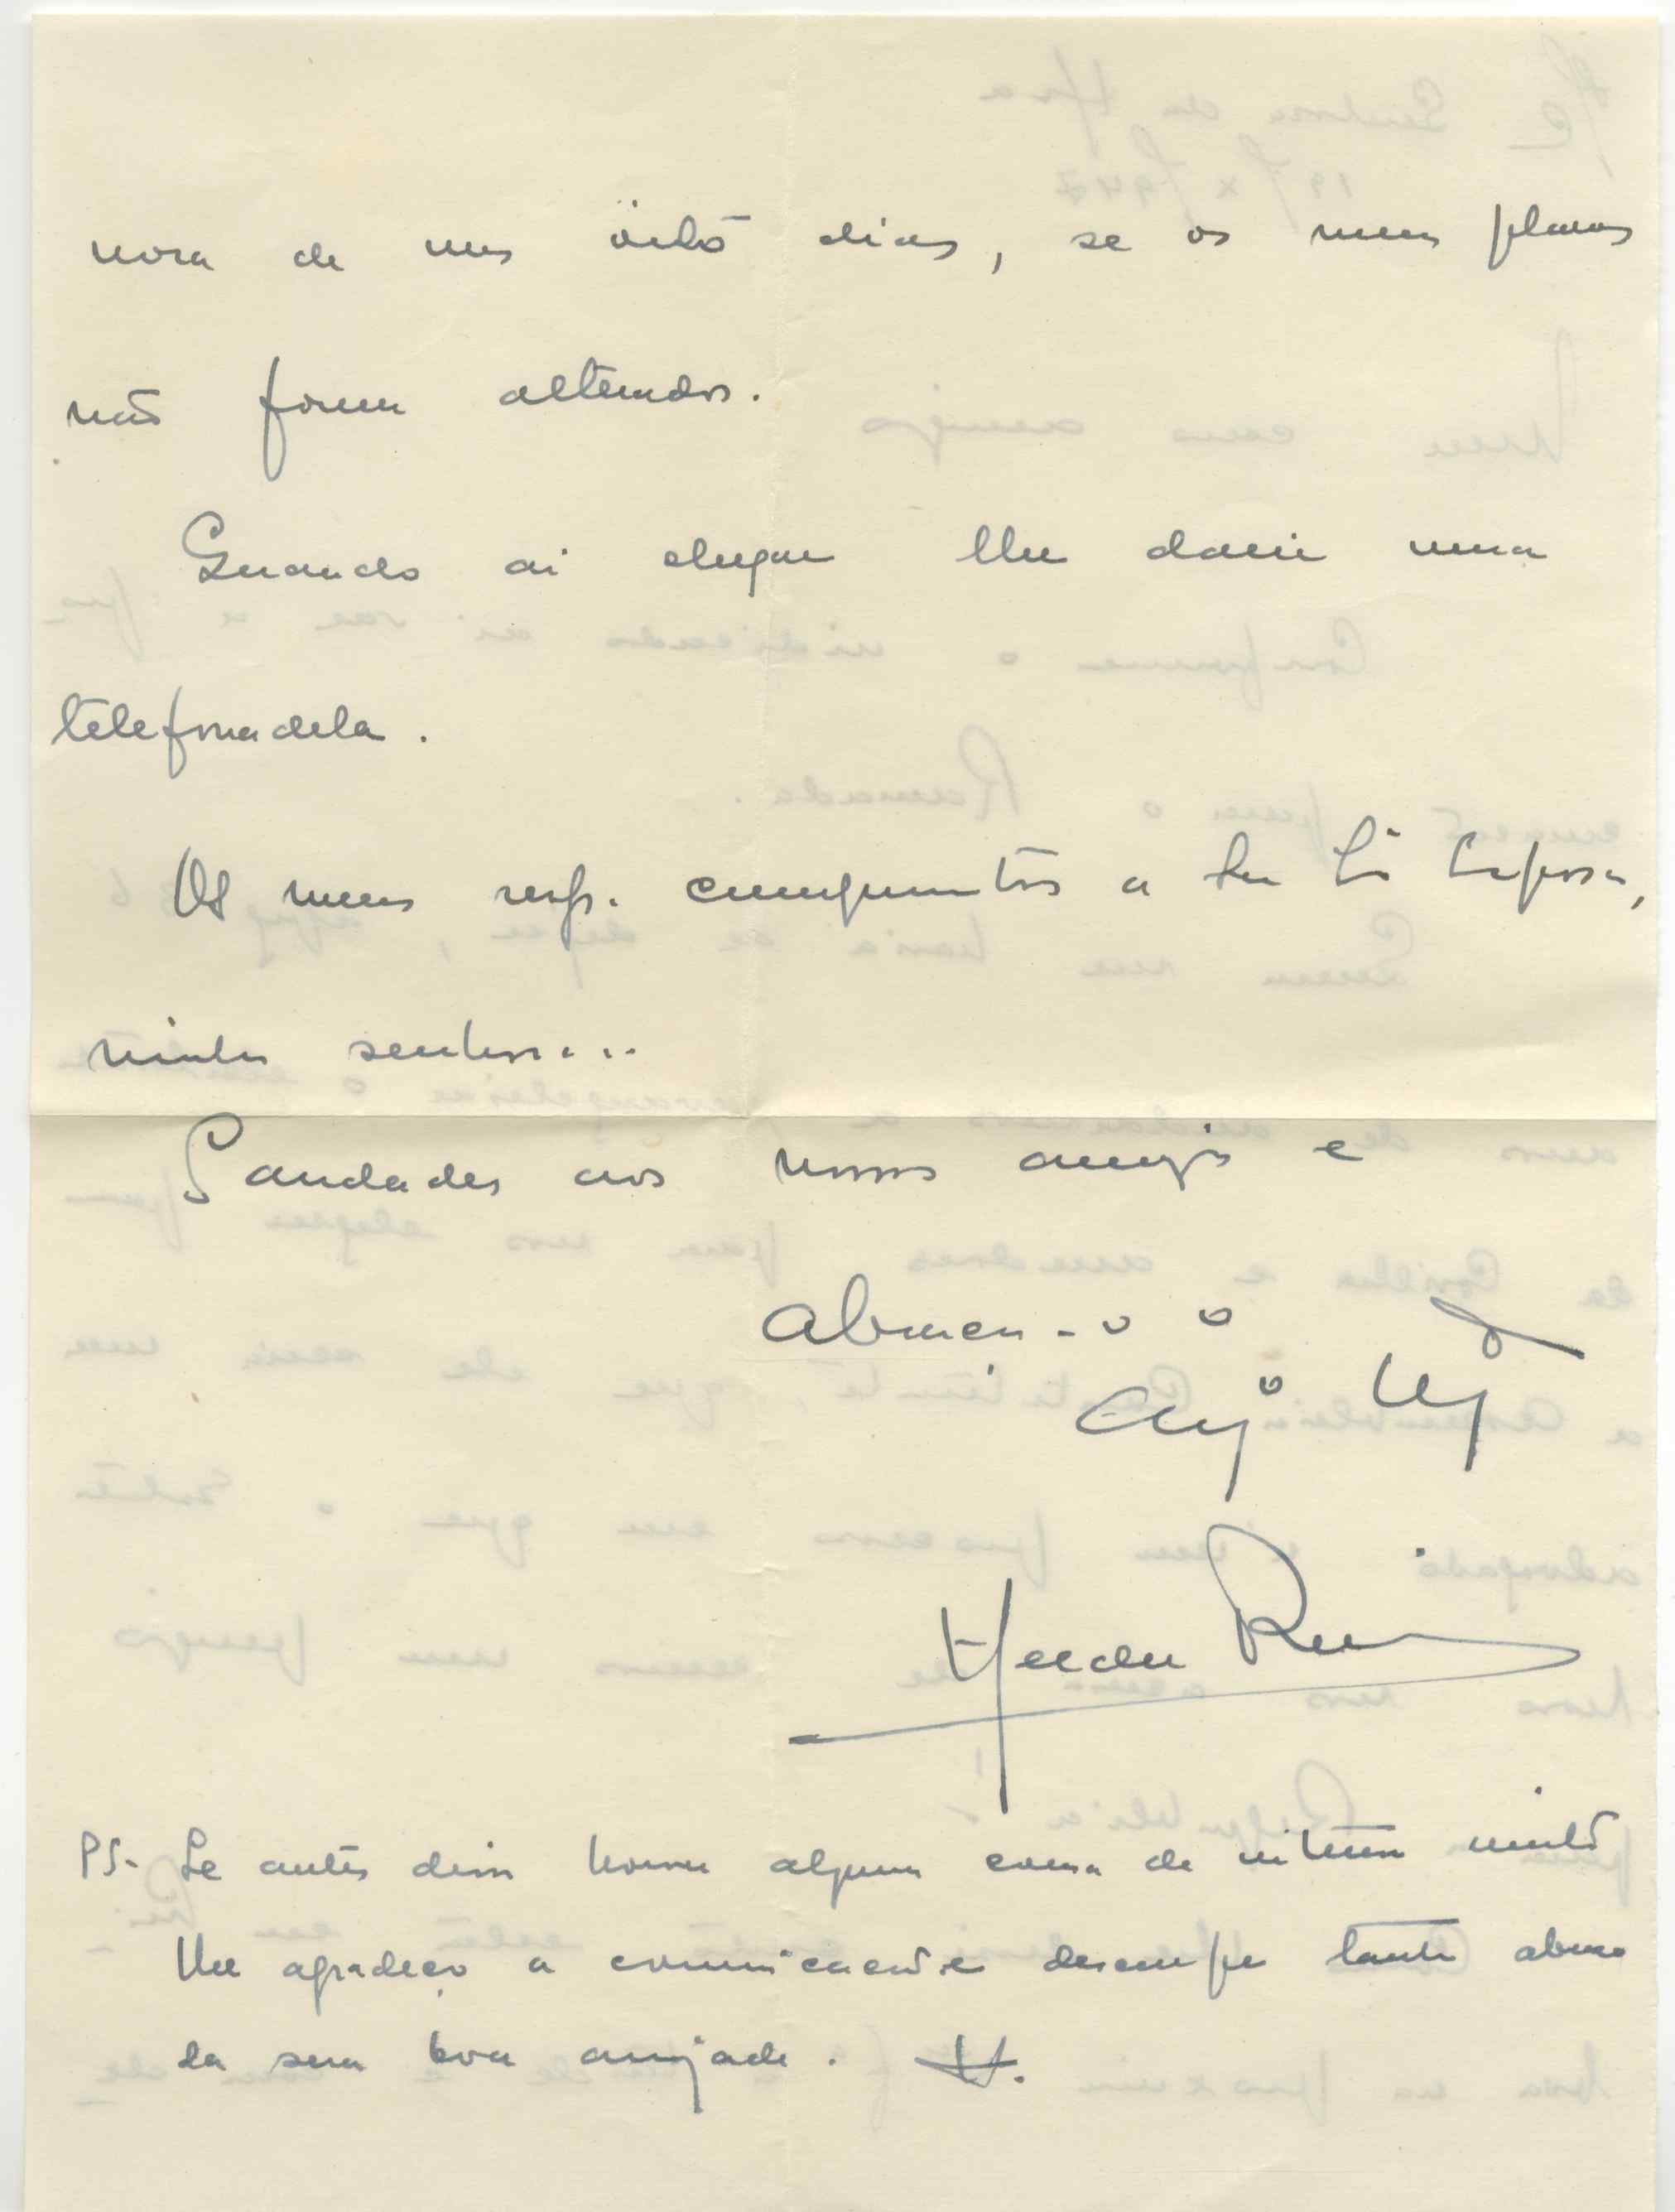 nora de uns oito dias, se os meus planos
não forem alterados.
Quando aí chegar lhe darei uma
telefonadela.
Os meus resp. cumprimentos a Sua Exª Esposa,
minha senhora...
Saudades aos nossos amigos e
abraça-o o
amº
Helder Ribeiro
PS. Se antes disso houver alguma coisa de interesse muito
lhe agradeço a comunicação e desculpe tanto abuso
da sua boa amizade. H.